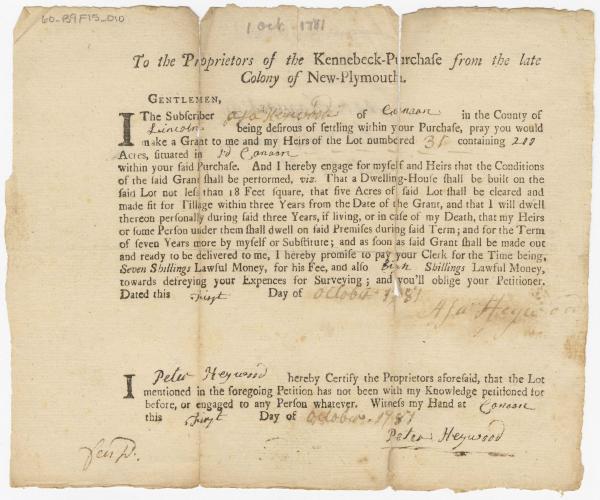 60-B9F15-010
1 Oct. 1781
To the Proprietors of the Kennebeck-Purchase from the late
Colony of New-Plymouth.
GENTLEMEN,
I The Subscriber Asa Heywood of Canaan in the County of
Lincoln being desirous of settling within your Purchase, pray you would
make a Grant to me and my Heirs of the Lot numbered 31 containing 200
Acres, situated in sd Canaan
within your said Purchase. And I hereby engage for myself and Heirs that the Conditions
of the said Grant shall be performed, viz. That a Dwelling-House shall be built on the
said Lot not less than 18 Feet square, that five Acres of said Lot shall be cleared and
made fit for Tillage within three Years from the Date of the Grant, and that I will dwell
thereon personally during said three Years, if living, or in case of my Death, that my Heirs
or some Person under them shall dwell on said Premises during said Term; and for the Term
of seven Years more by myself or Substitute; and as soon as said Grant shall be made out
and ready to be delivered to me, I hereby promise to pay your Clerk for the Time being,
Seven Shillings Lawful Money, for his Fee, and also Shillings Lawful Money,
towards defreying your Expences for Surveying; and you'll oblige your Petitioner.
Dated this First Day of October 1781
Asa Heywood
I Peter Heywood hereby Certify the Proprietors aforesaid, that the Lot
mentioned in the foregoing Petition has not been with my Knowledge petitioned for
before, or engaged to any Person whatever. Witness my Hand at Canaan
this First Day of October 1781
Peter Heywood